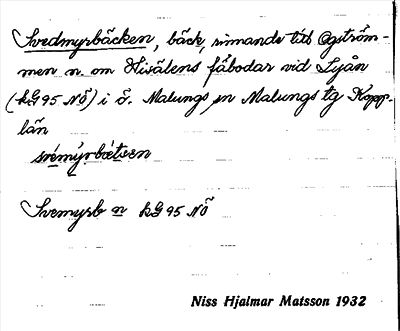 Svedmyrbäcken, bäck, rinnande till Ogström-
men n. om Hisälens fäbodar vid Ljån
(kG 95 NÖ) i ö. Malungs sn Malungs tg Kopp.
län
svémýrbætsen
Svemyrb n kG 95 NÖ
Niss Hjalmar Matsson 1932